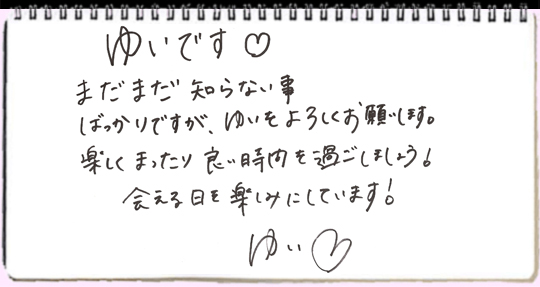 ゆいです♡
まだまだ知らない事
ばっかりですが、ゆいをよろしくお願いします。
楽しくまったり良い時間を過ごしましょう!
会える日を楽しみにしています!
ゆい♡